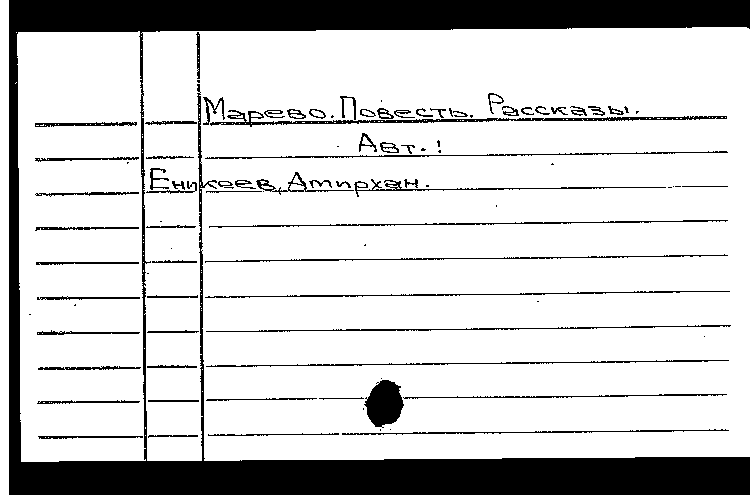 Марево. Повесть. Рассказы.
Авт.!
Еникеев, Амирхан.